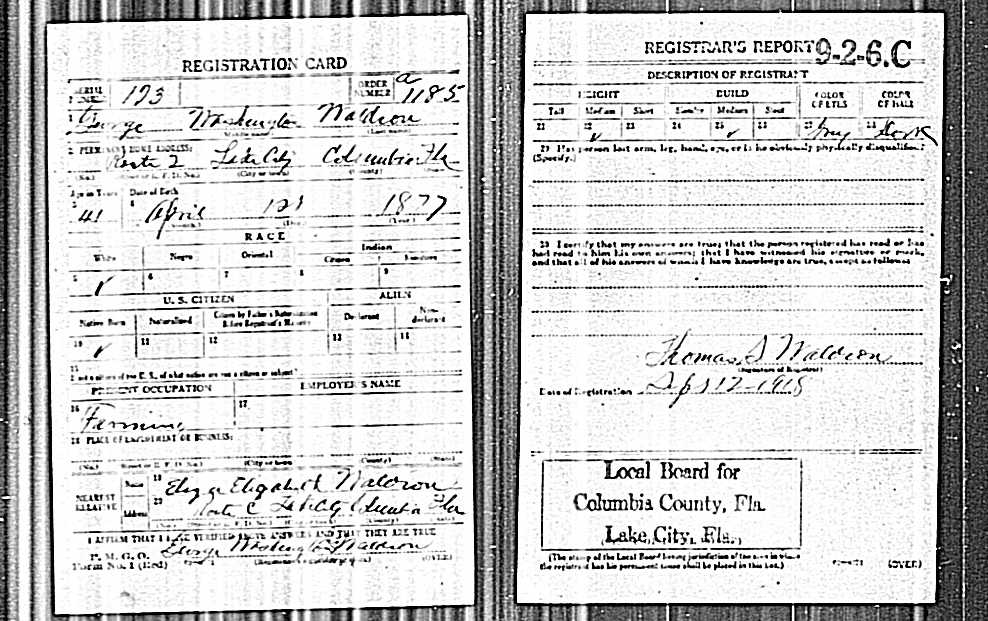 REGISTRATION CARD
SERIAL NUMBER 173
ORDER NUMBER a 1185
1 George Washington Waldron
(Middle name) (Last name)
2 PERMANENT HOME ADDRESS:
Route 2 Lake City Columbia Fla
(No.) (City or town) (County) (State)
Age in Years Date of Birth
3 41 4 April 12 1877
(Month.) (Day.) (Year.)
RACE
White Negro Oriental Indian
Citizen Noncitizen
5 ✓ 6 7 8 9
U. S. CITIZEN ALIEN
Native Born Naturalized Citizen by Father's Naturalization Before Registrant's Majority Declarant Non-declarant
10 ✓ 11 12 13 14
15
If not a citizen of the U. S., of what nation are you a citizen or subject?
PRESENT OCCUPATION EMPLOYER'S NAME
16 Farming 17
18 PLACE OF EMPLOYMENT OR BUSINESS:
(No.) (Street or R. F. D. No.) (City or town) (County) (State)
NEAREST RELATIVE Name 19 Elizabeth Waldron
Address 20 Lake City Columbia Fla
(No.) (Street or R. F. D. No.) (City or town) (County) (State)
I AFFIRM THAT I HAVE VERIFIED ABOVE ANSWERS AND THAT THEY ARE TRUE
P. M. G. O.
Form No. 1 (Red) George Washington Waldron
(Registrant's signature or mark) (OVER)
REGISTRAR'S REPORT 9-2-6.C
DESCRIPTION OF REGISTRANT
HEIGHT BUILD COLOR OF EYES COLOR OF HAIR
Tall Medium Short Slender Medium Stout
21 22 ✓ 23 24 25 ✓ 26 27 Gray 28 Dark
29 Has person lost arm, leg, hand, eye, or is he obviously physically disqualified?
(Specify.)
30 I certify that my answers are true; that the person registered has read or has
had read to him his own answers; that I have witnessed his signature or mark,
and that all of his answers of which I have knowledge are true, except as follows:
Thomas S Waldron
(Signature of Registrar)
Date of Registration Sept 12-1918
Local Board for
Columbia County, Fla.
Lake City, Fla.
(The stamp of the Local Board having jurisdiction of the area in which
the registrant has his permanent home shall be placed in this box.)
(OVER)